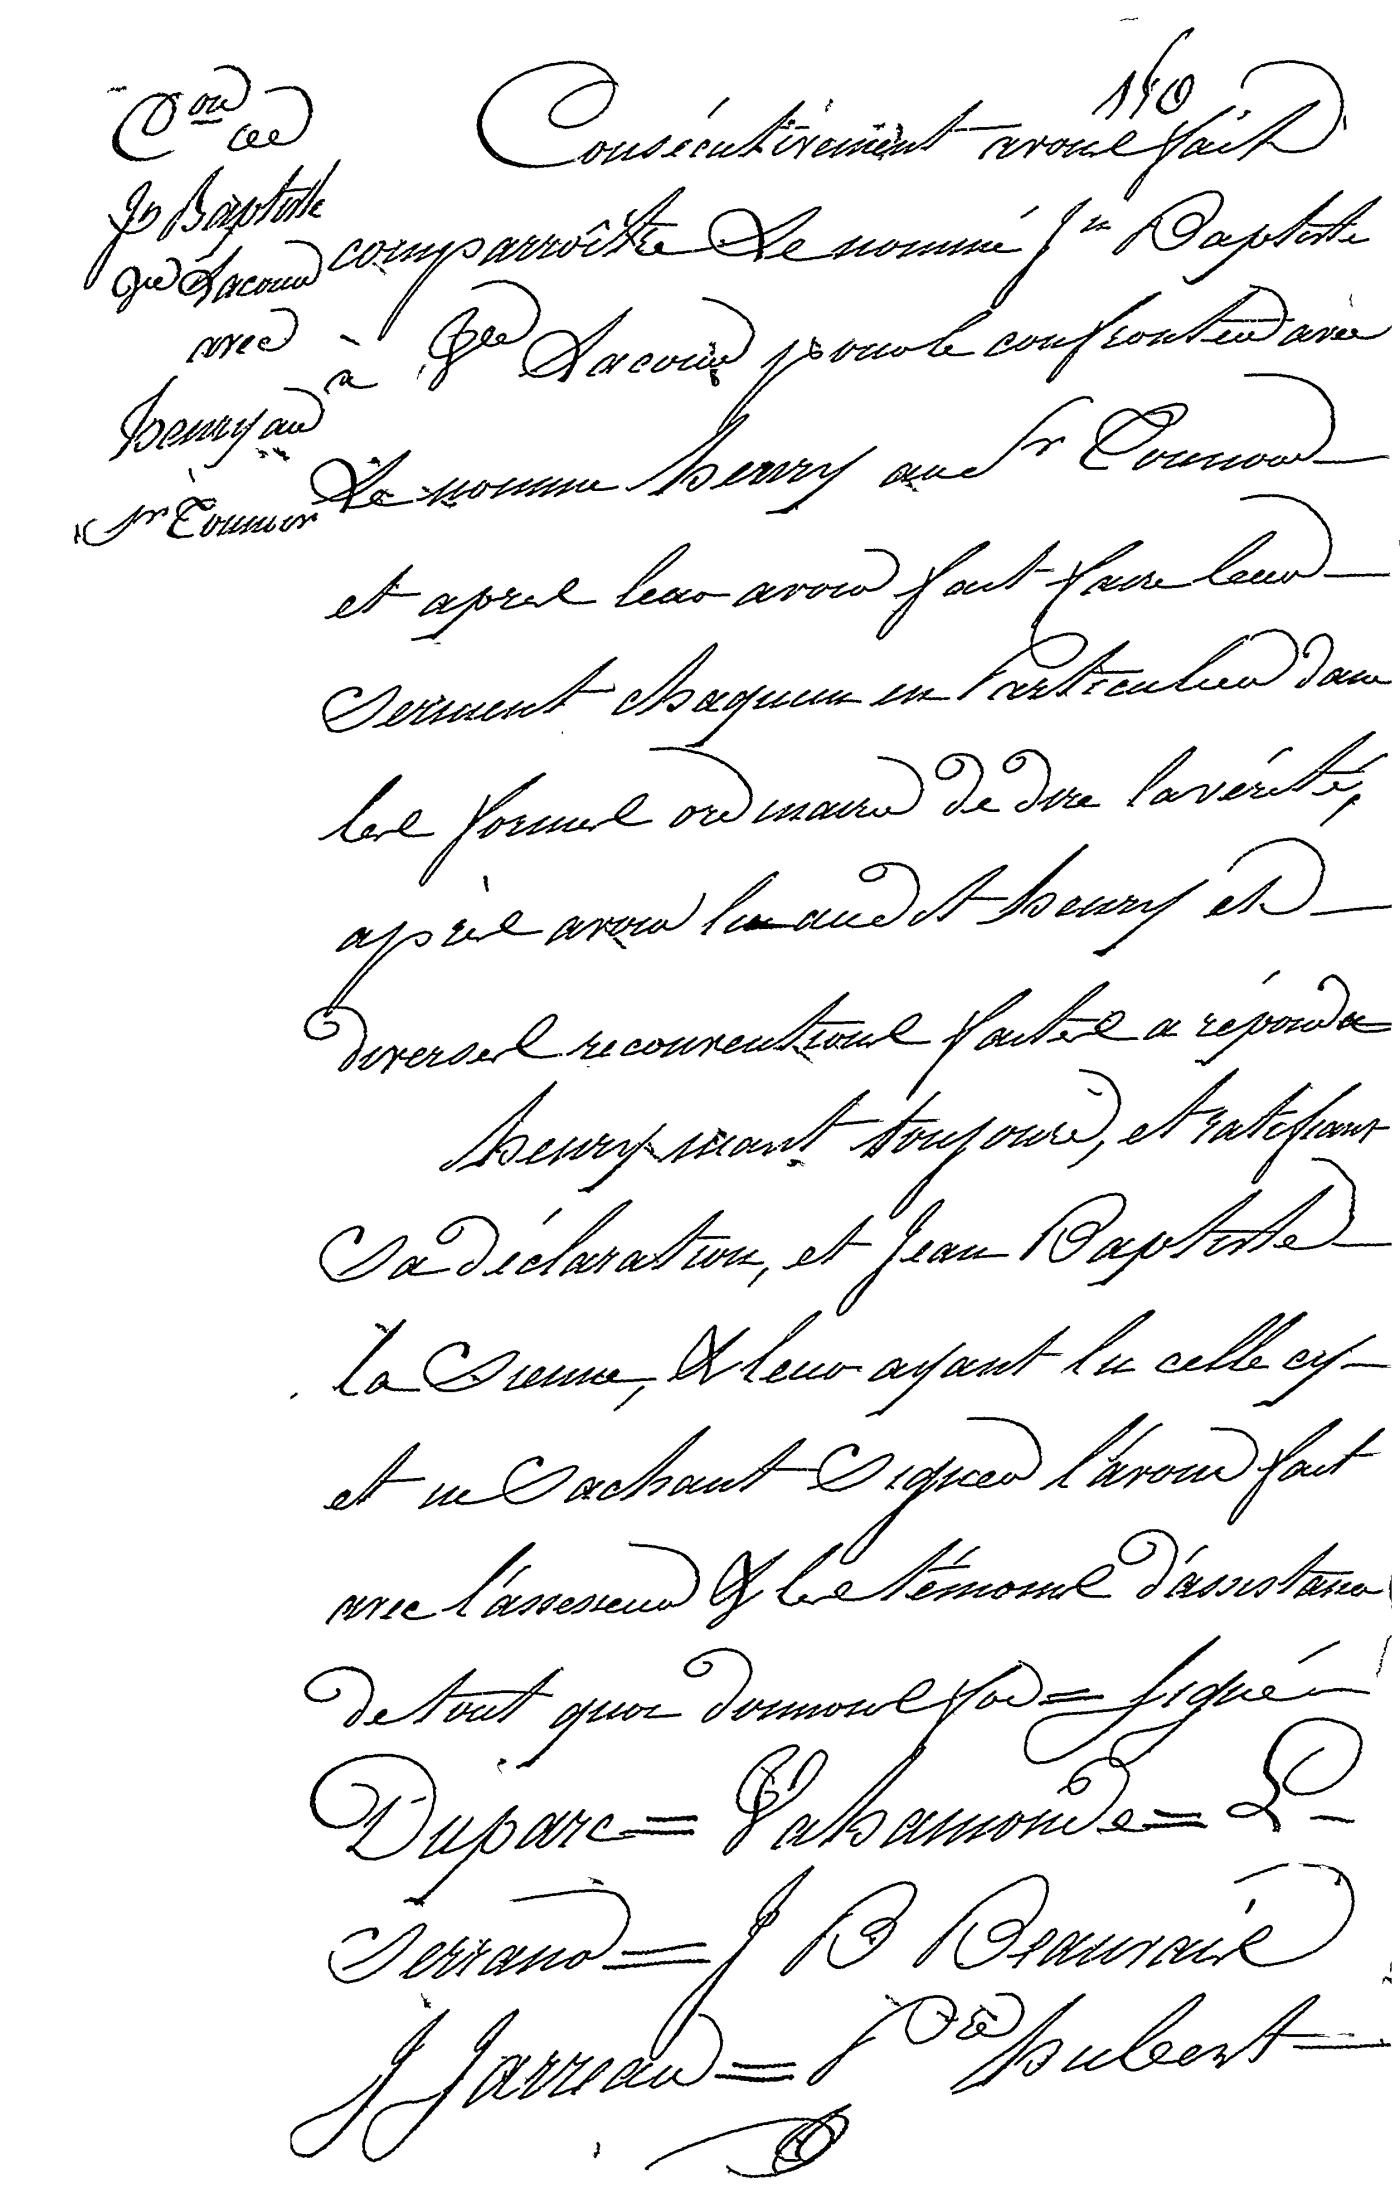 140
C.on de
Jn Baptiste
Lacour
avec
henry au
Sr Tounoir
Consécutivement avons fait
comparroître Le nommé Jn Baptiste
à Lacour pour le confronter avec
Le nommé henry au Sr Tounoir
et apres leur avoir fait faire leur
serment chaqun en Particulier dans
les formes ordinaires de dire la vérité,
après avoir lu audit henry et
diverses reconventions faites a répondu
henry niant toujours, et ratifiant
Sa déclaration, et Jean Baptiste
la Sienne, & leur ayant lu celle cy
et ne Sachant Signer l'avons fait
avec l'assesseur & les témoins d'assistance
de tout quoi donnons foi = signé
Duparc = Vahamonde = L
Serrano = J B Beauvais
J Jarreau = hubert